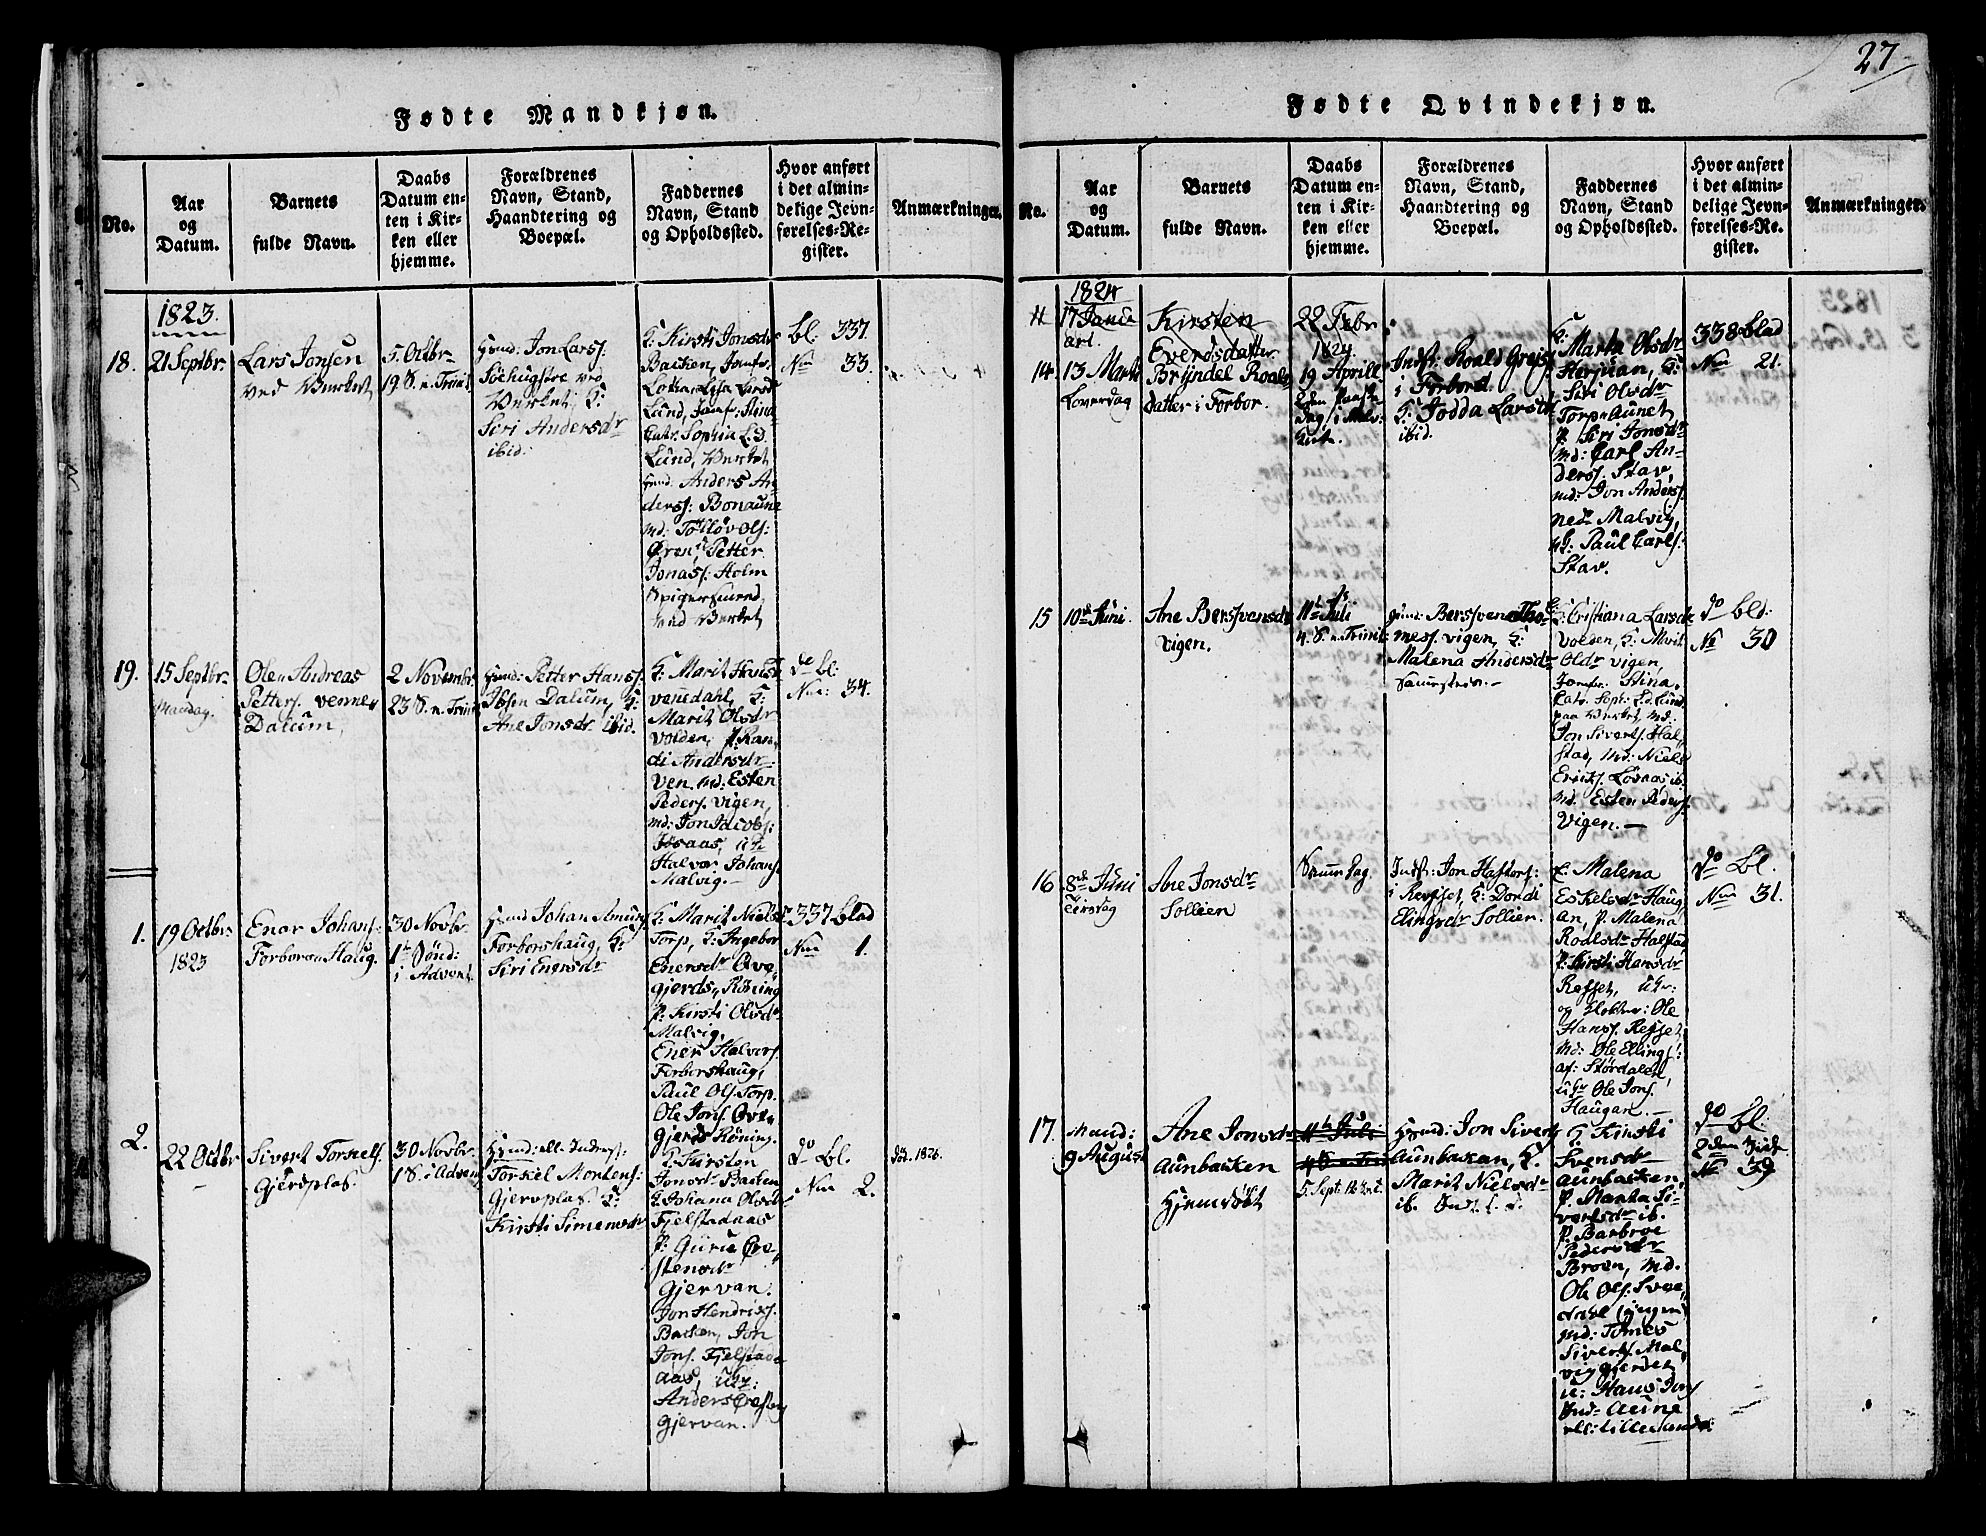 27
Fødte Mandkjøn.
No.
Aar
og
Datum.
Barnets
fulde Navn.
Daabs
Datum en-
ten i Kir-
ken eller
hjemme.
Forældrenes
Navn, Stand,
Haandtering og
Boepæl.
Faddernes
Navn, Stand
og Opholdssted.
Hvor anført
i det almin-
delige Jevn-
førelses-Re-
gister.
Anmærkninger.
1823.
18.
21 Septbr.
Lars Jonsen
ved Verket
5. Octbr
19. S. n. Trinit
Jon Lars:
ved
Verket,
Siri Andersdr
ibid:
Kirsti Jonsdr
Backen, Jomfr.
Lund, Jomf: Stina
Catr: Sophia L. d.
Lund, Verket
Anders An-
ders: Bonaune
md: Tolløv Ols:
Øren, Petter
Jonas: Holm
ved Verket
bl: 337.
No 33.
19.
15 Septbr
Mandag.
Ole Andreas
Petters.
Dalum,
2 Novembr
23 S. n. Trinit
Petter Hans:
Ibsen Dalum,
Ane Jonsdr ibid.
Marit
Marit Olsdr
Volden, p. Ran-
di Andersdr
Ven, md: Esten
Peders. vigen,
md: Jon Jacobs:
Halvor Johans
Malvig.
do bl:
No: 34.
1.
19 Octbr
1823
Ener Johans:
Forbors Haug.
30 Novbr
1te Sønd:
i Advent.
Johan Amund
Forborshaug,
Siri Enersdr
Marit Niels
Torp, Ingebor
Enersdr Qve-
gjerds, Røning
p. Kirsti Olsdr
Malvig,
Ener Halvors
Forborshaug,
Paul Ols. Torp.
Ole Jons. Qve-
gjerds Røning.
337 blad
No 1.
2.
22 Octbr
Sivert Torkels.
Gjervplas.
30 Novbr
1 S. i Advent
Torkel Mortens:
Gjervplas
Kirsti Simensdr
Kirsten
Jonsdr Backen
Johana Olsdr
Fjelstadaas
p. Gurie Cre-
stensdr
Gjervan.
Jon Hendrics.
Backen, Jon
Jons. Fjelstad
aas,
Anders Cresten
Gjervan.
do bl.
No 2.
1826.
Fødte Qvindekjøn.
No.
Aar
og
Datum.
Barnets
fulde Navn.
Daabs
Datum en-
ten i Kir-
ken eller
hjemme.
Forældrenes
Navn, Stand,
Haandtering og
Boepæl.
Faddernes
Navn, Stand
og Opholdssted.
Hvor anført
i det almin-
delige Jevn-
førelses-Re-
gister.
Anmærkninger.
1824
11
17 Janu
Kirsten
Everdsdatter
22 Febr
1824.
14.
13 Marti
Løverdag
Bryndel Roals
datter i Forbor.
19 Aprill
2den Paaske
Dag i Malv.
Kirk.
Indst: Roald Greis
i Forbord
Jodda Larsdr
ibid.
Marta Olsdr
Herjuan,
Siri Olsdr
Torp Aunet
p. Siri Jonsdr
md: Carl An-
ders. Stav,
md: Jon Anders.
Ned Malvig,
Paul Carls:
Stav.
338 blad
No 21.
15
10de Juni
Ane Bersvensdr
vigen.
11te Juli
4. S. n. Trinit
Bersven Tho-
mess. vigen,
Malena Andersdr
Cristiana Larsdr
Volden, Marit
Olsdr vigen,
Jomfr. Stina,
paa Verket, md.
Jon Siverts. Hal-
stad, md: Niels
Ericks. Løvaas ib.
md. Esten Peders
Vigen.
do bl:
No 30
16
8de Juni
Tirsdag
Ane Jonsdr
Sollien
Samme Dag
Indst: Jon Haftors:
i Refset, Dordi
Elingsdr Sollien.
Malena
Eskelsdr Haug-
an, p. Malena
Roalsdr Halstad
p. Kirsti Hansdr
Refset,
og Klokker: Ole
Hans. Refset,
md: Ole Ellings:
af: Størdalen,
Ole Jons.
Haugan.
do bl.
No 31.
17.
Mand:
9 August
Ane Jonsdr
Aunbacken
Hjemdøbt
11te Juli
4 S. n. Trinit
5. Sept: 12 S. n. t.
Jon Siverts
Aunbakan,
Marit Nielsdr
ib.
Kirsti
Svensdr
Aunbacken,
p. Marta Si-
vertsdr ib.
p. Barbroe
Pedersdr
Broen, md.
Ole Ols: Svee
md: Tomes
Siverts. Mal-
viggjerdet
u: Hans Jons
Aune
ell: Lillesand
do bl.
2den Side
No 39